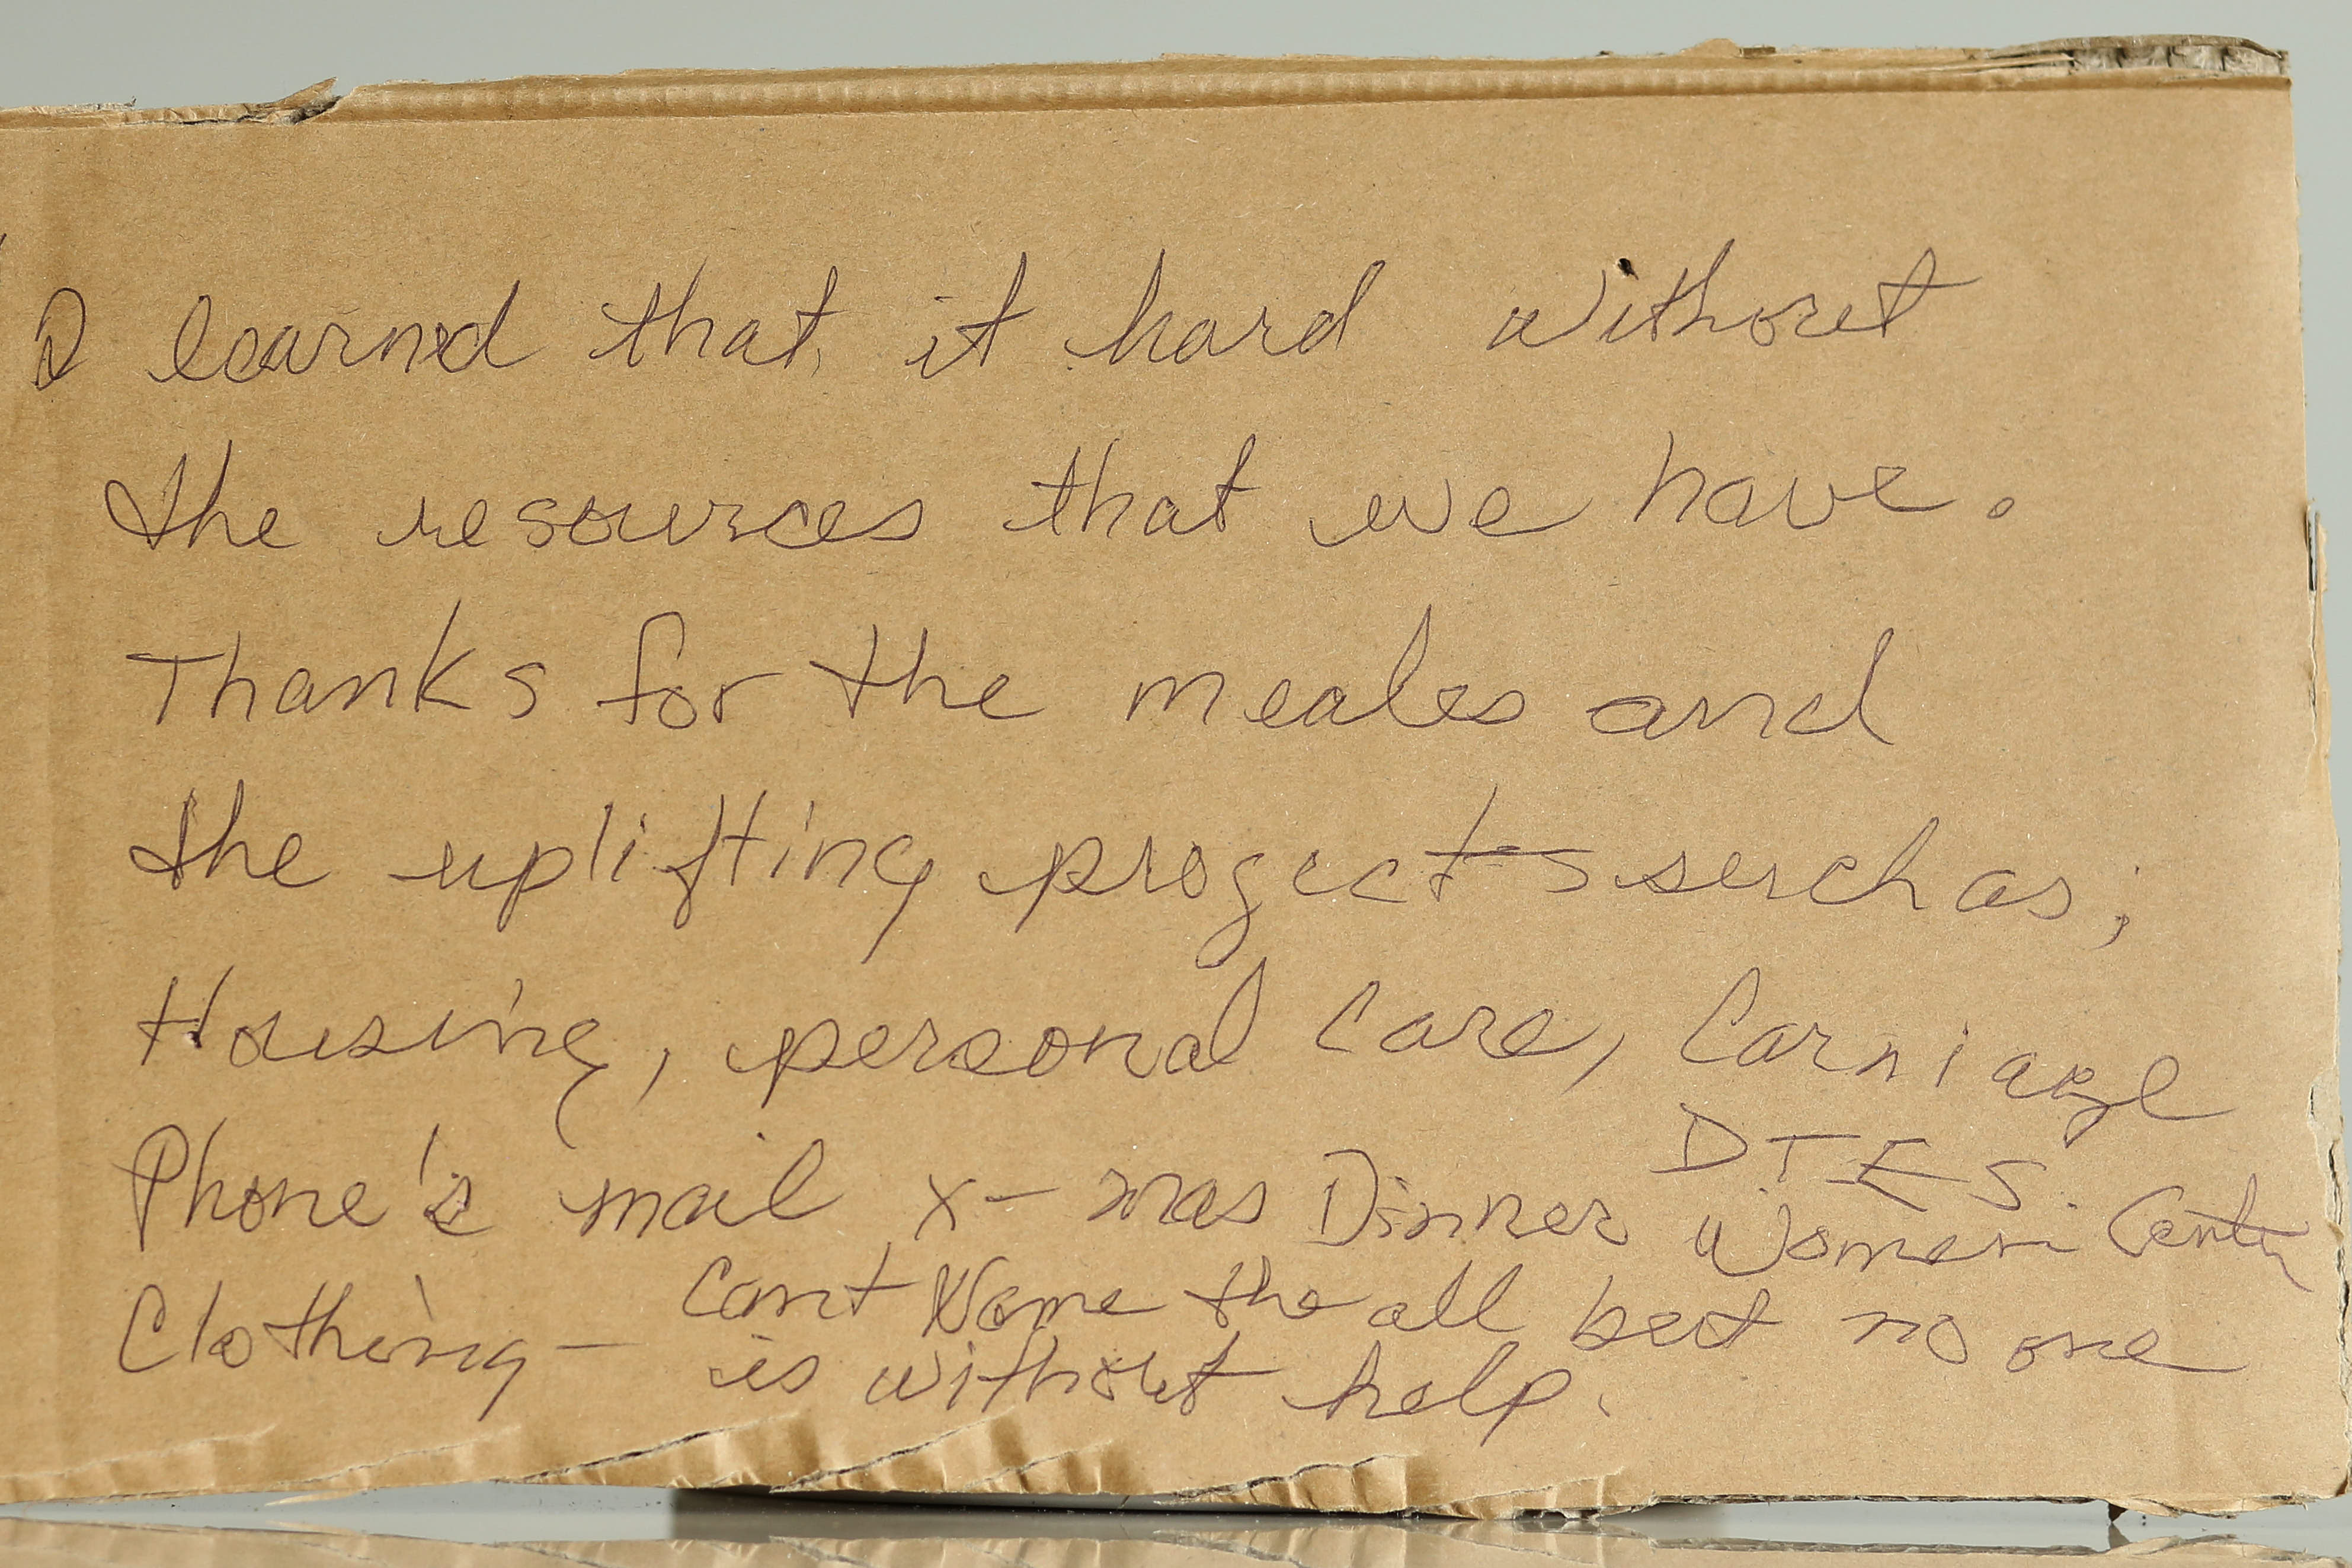 I learned that it hard without
the resources that we have.
Thanks for the meales and
the uplifting progects such as;
Housing, personal care, Carniage
Phone's mail x-mas Dinner DTES Women Center
Clothing - Cant Name the all but no one
is without help.